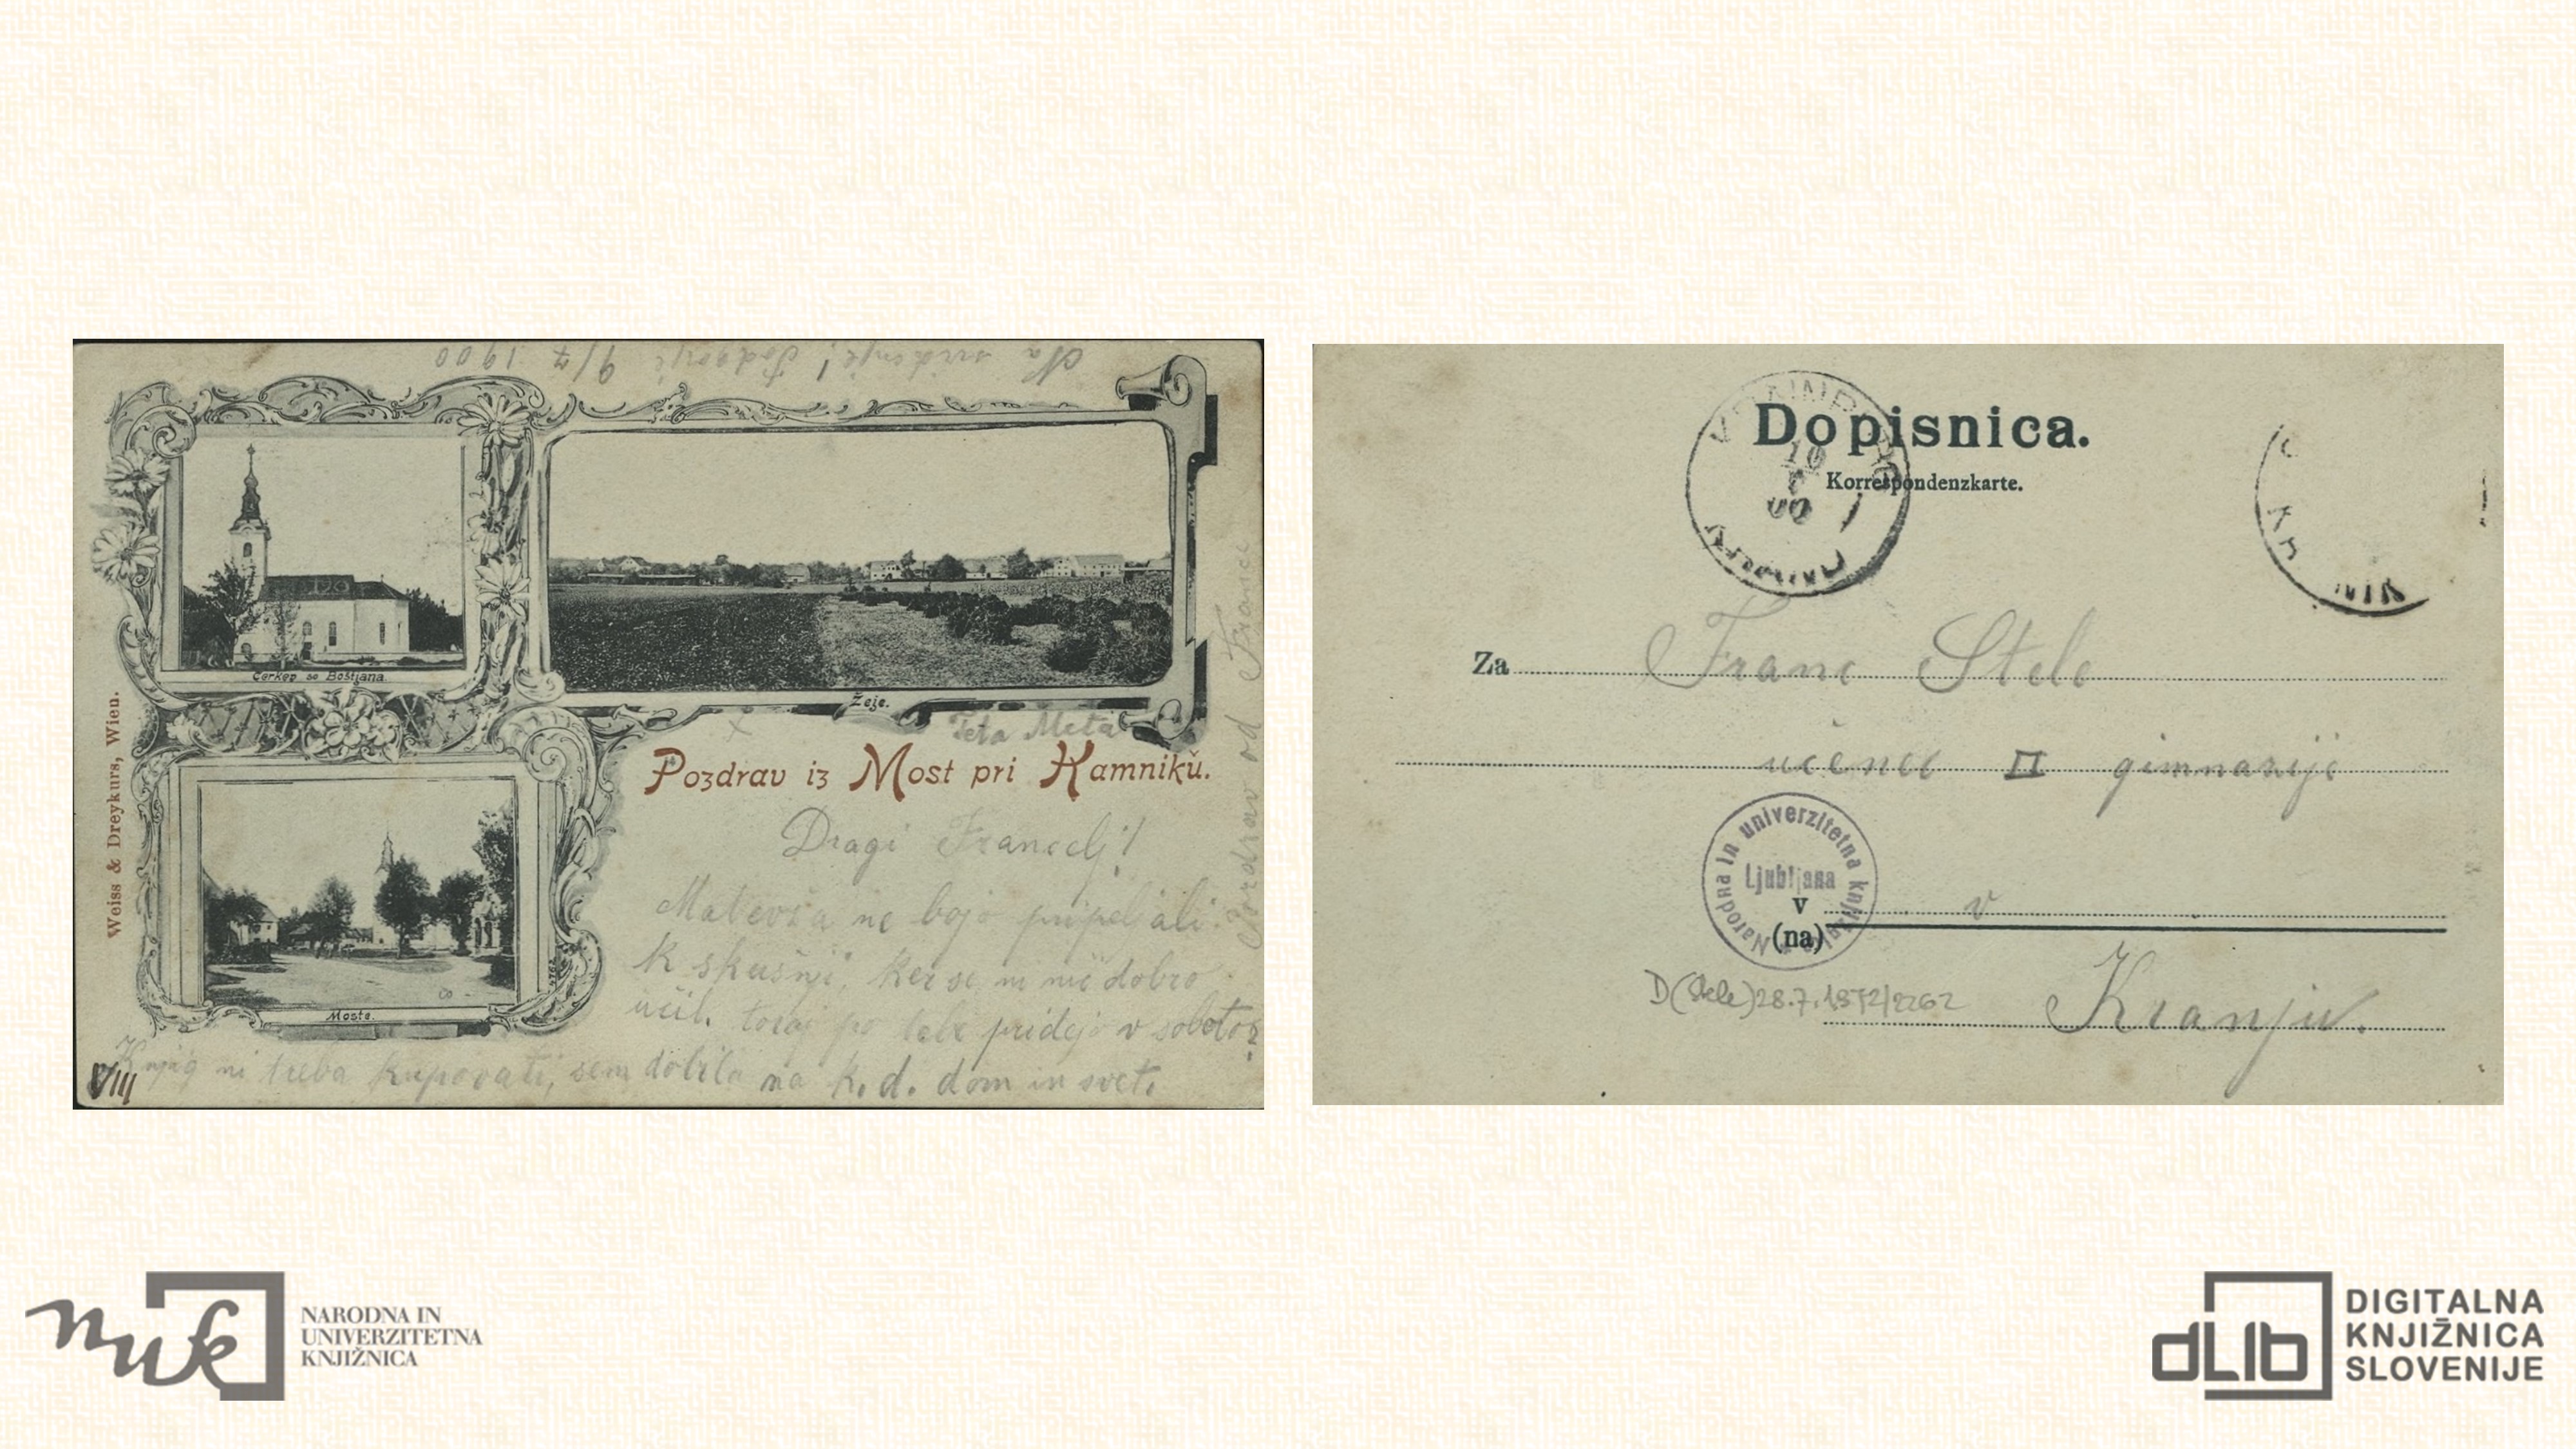 Na svidenje! Podgorje 9/7 1900
Cerkev sv Boštjana.
Žeje.
Teta Meta
Pozdrav iz Most pri Kamniku.
Weiss & Dreykurs, Wien.
Pozdrav od France
Dragi Francelj!
Matevža ne bojo pripeljali
k skušnji, ker se ni nič dobro
učil. Torej po tebe pridejo v soboto
Knjig ni treba kupovati, sem dobila na k. d. dom in svet.
Moste.
VIII
Dopisnica.
Korrespondenzkarte.
10
00
Za Franc Stele
učenec II gimnazije
Narodna in univerzitetna knjižnica
Ljubljana
v v
(na)
D(Stele)28.7.1972/2262
Kranju.
nuk
NARODNA IN
UNIVERZITETNA
KNJIŽNICA
dLib
DIGITALNA
KNJIŽNICA
SLOVENIJE